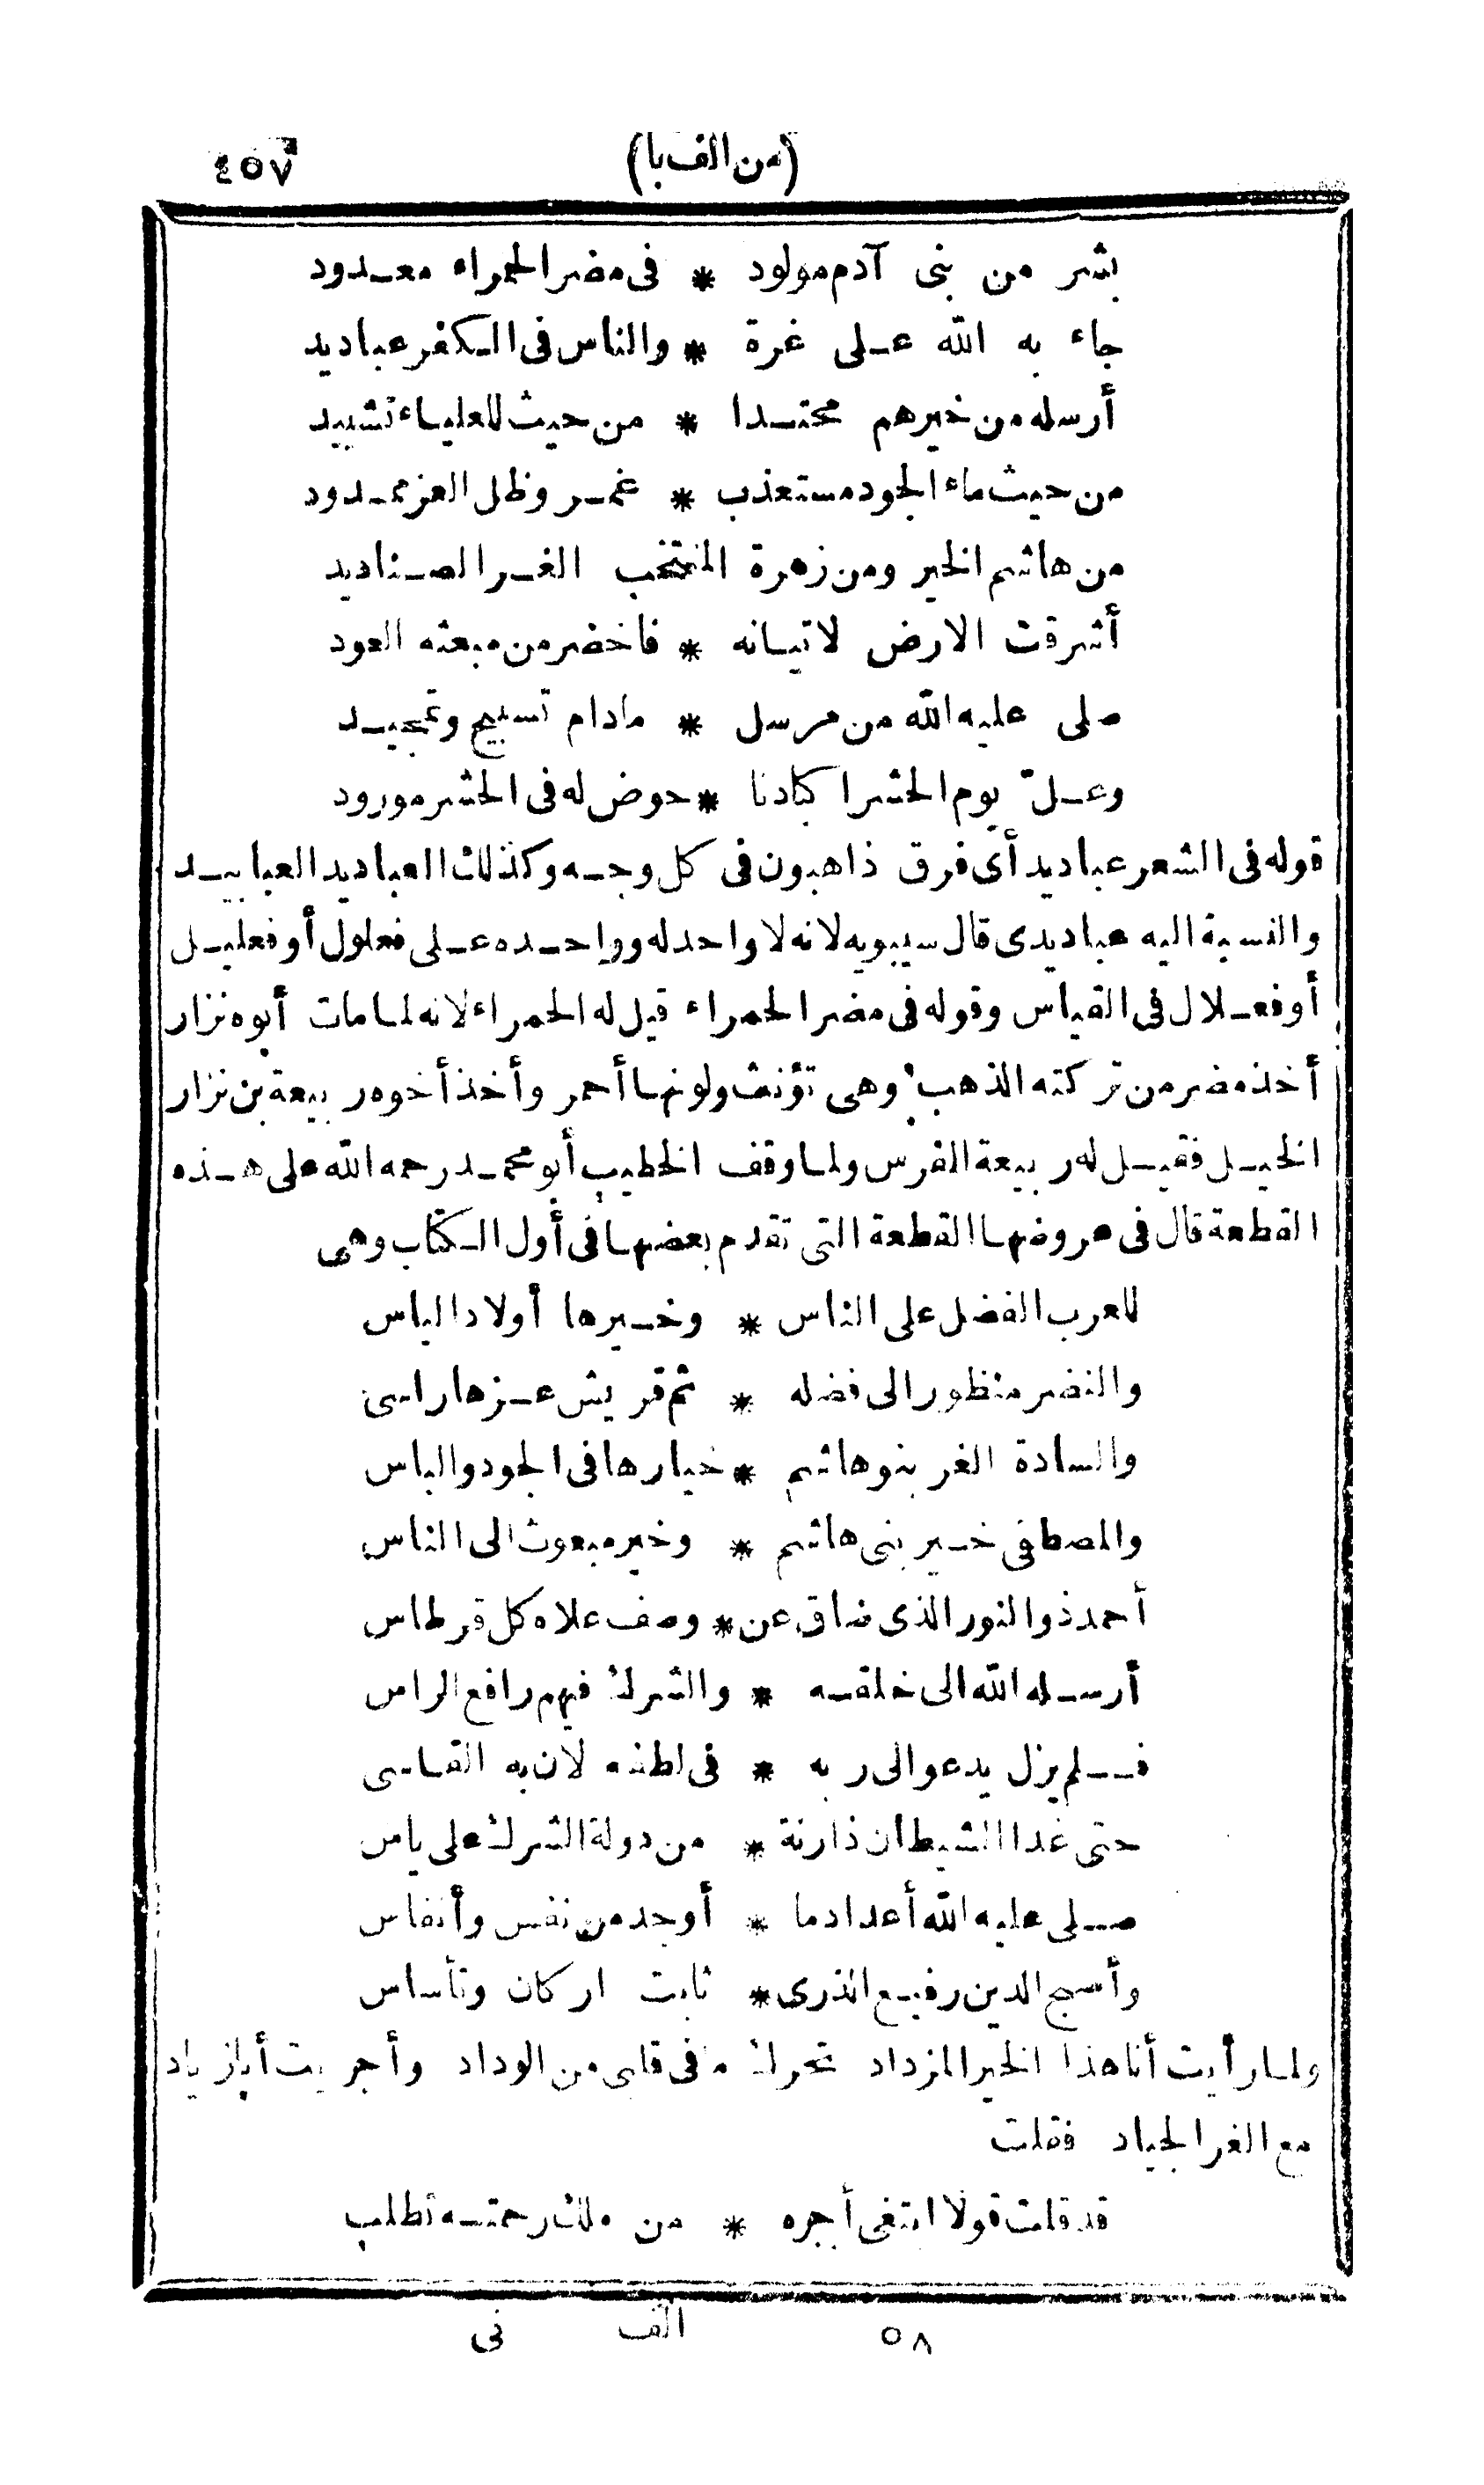 (من الف با) ٤٥٧
بشر من بنى آدم مولود * فى مضر الحمراء معدود
جاء به الله على غرة * والناس فى الكفر عباديد
أرسله من خيرهم محتدا * من حيث للعلياء تشييد
من حيث ماء الجود مستعذب * غمر وظل العز ممدود
من هاشم الخير ومن زهرة المنتخب الغر الصناديد
أشرقت الارض لاتيانه * فاخضر من مبعثه العود
صلى عليه الله من مرسل * مادام تسبيح وتمجيد
وعلّ يوم الحشر اكبادنا * حوض له فى الحشر مورود
قوله فى الشعر عباديد أى فرق ذاهبون فى كل وجه وكذلك العباديد العبابيد
والنسبة اليه عباديدى قال سيبويه لانه لا واحد له وواحده على فعلول أو فعليل
أو فعلال فى القياس وقوله فى مضر الحمراء قيل له الحمراء لانه لما مات أبوه نزار
أخذ مضر من تركته الذهب وهى تؤنث ولونها أحمر وأخذ أخوه ربيعة بن نزار
الخيل فقيل له ربيعة الفرس ولما وقف الخطيب أبو محمد رحمه الله على هذه
القطعة قال فى عروضها القطعة التى تقدم بعضها فى أول الكتاب وهى
للعرب الفضل على الناس * وخيرها أولاد الياس
والنضر منظور الى فضله * ثم قريش عزها راسى
والسادة الغر بنو هاشم * خيارها فى الجود والباس
والمصطفى خير بنى هاشم * وخير مبعوث الى الناس
أحمد ذو النور الذى ضاق عن * وصف علاه كل قرطاس
أرسله الله الى خلقه * والشرك فيهم رافع الراس
فلم يزل يدعو الى ربه * فى لطفه لان به القاسى
حتى غدا الشيطان ذا رنة * من دولة الشرك على ياس
صلى عليه الله أعداد ما * أوجد من نفس وأنفاس
وأصبح الدين رفيع الذرى * ثابت اركان وتأساس
ولما رأيت أنا هذا الخير المزداد تحرك ما فى قلبى من الوداد وأجريت أبازياد
مع الغر الجياد فقلت
قد قلت قولا ابتغى أجره * من ملك رحمته تطلب
٥٨ الف نى